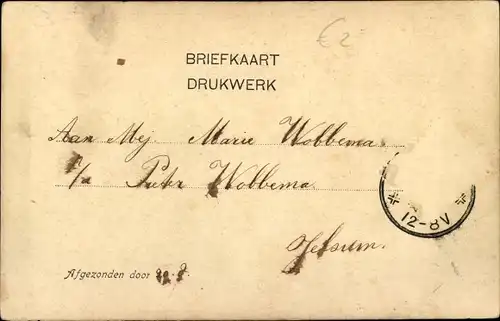 € 2
BRIEFKAART
DRUKWERK
Aan Mej. Marie Wobbema
p/a Pieter Wobbema
Jelsum.
12-8V
Afgezonden door